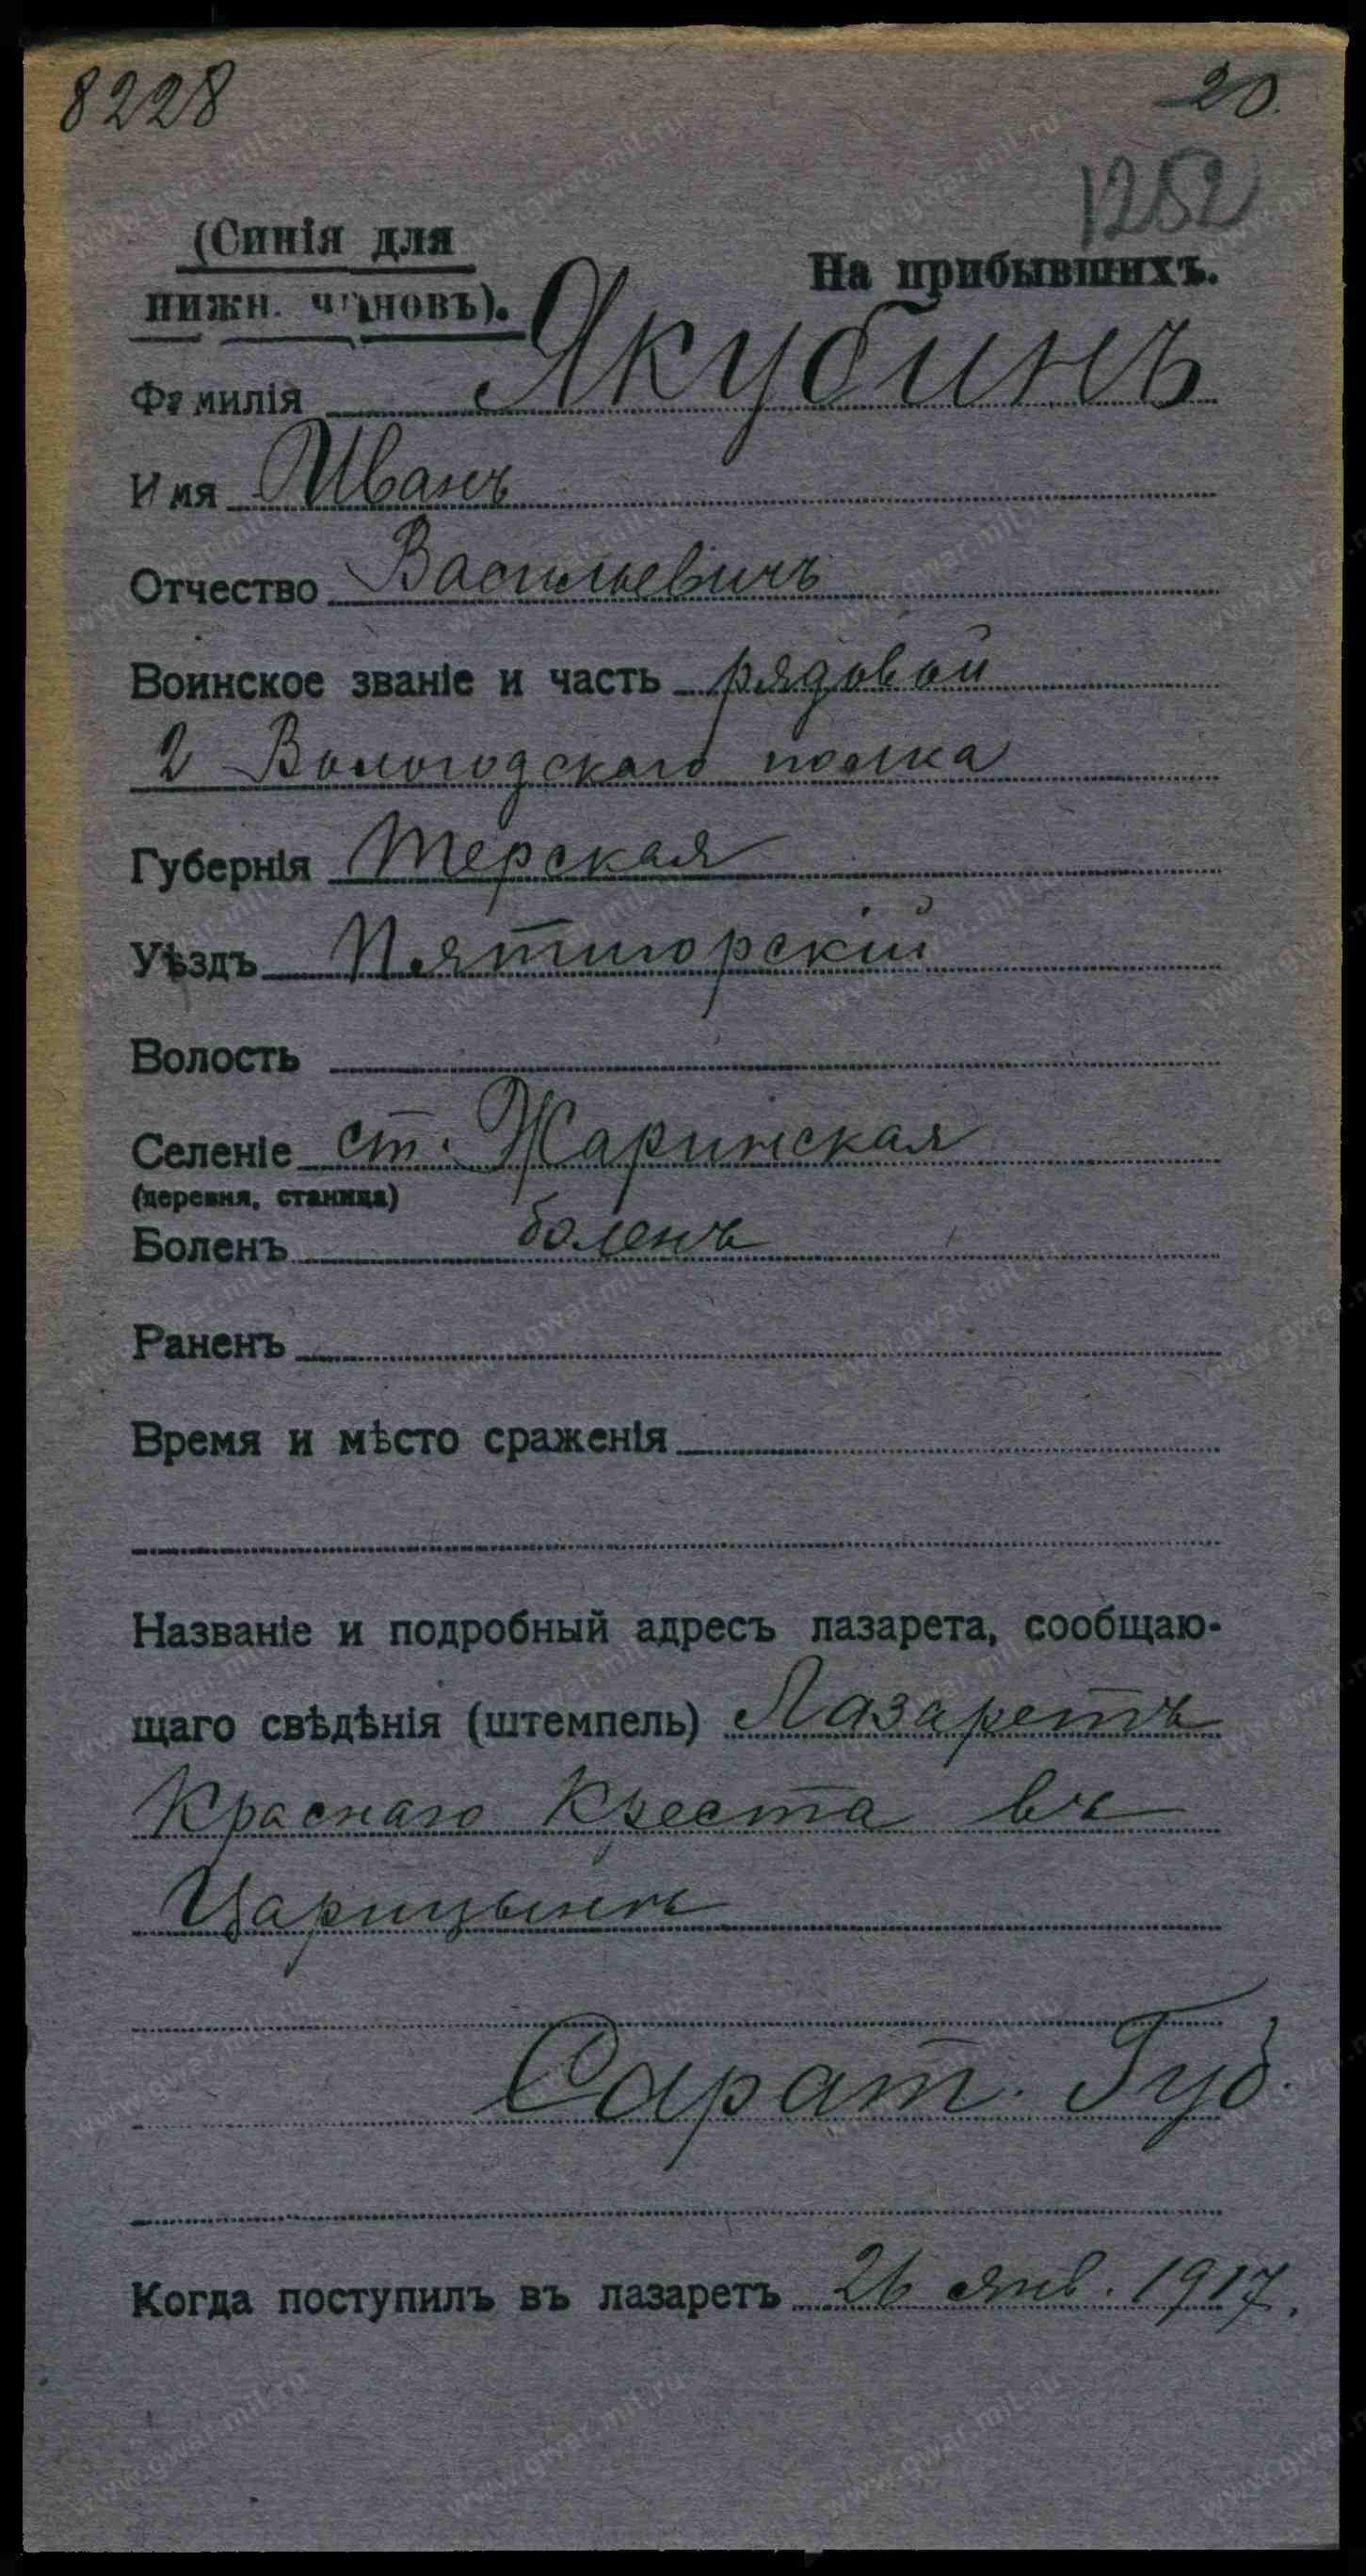 8228
20.
1252
(Синія для
На прибывшихъ.
нижн. чиновъ).
Фамилія Якубинъ
Имя Иванъ
Отчество Васильевичъ
Воинское званіе и часть рядовой
2 Вологодскаго полка
Губернія Терская
Уѣздъ Пятигорскій
Волость
Селеніе ст. Жаринская
(деревня, станица)
Боленъ боленъ
Раненъ
Время и мѣсто сраженія
Названіе и подробный адресъ лазарета, сообщаю-
щаго свѣдѣнія (штемпель) Лазаретъ
Краснаго Креста въ
Царицынѣ
Сарат. Губ.
Когда поступилъ въ лазаретъ 26 янв. 1917.
www.gwar.mil.ru